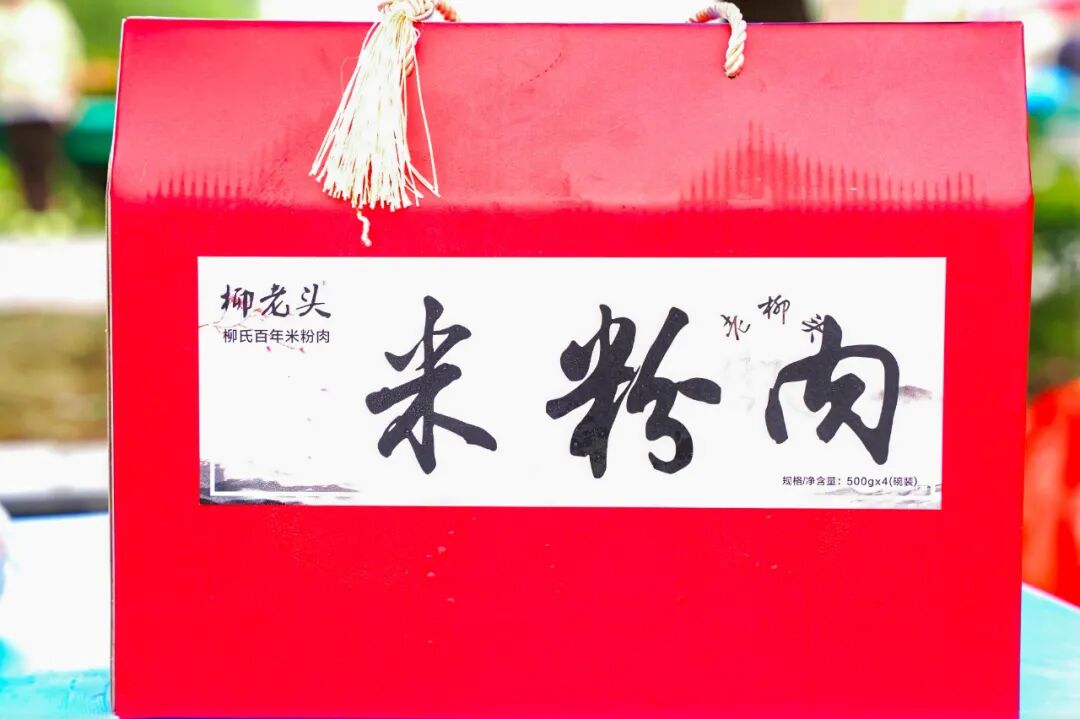 柳老头
柳氏百年米粉肉
米粉肉
老柳头
规格/净含量：500gx4(碗装)